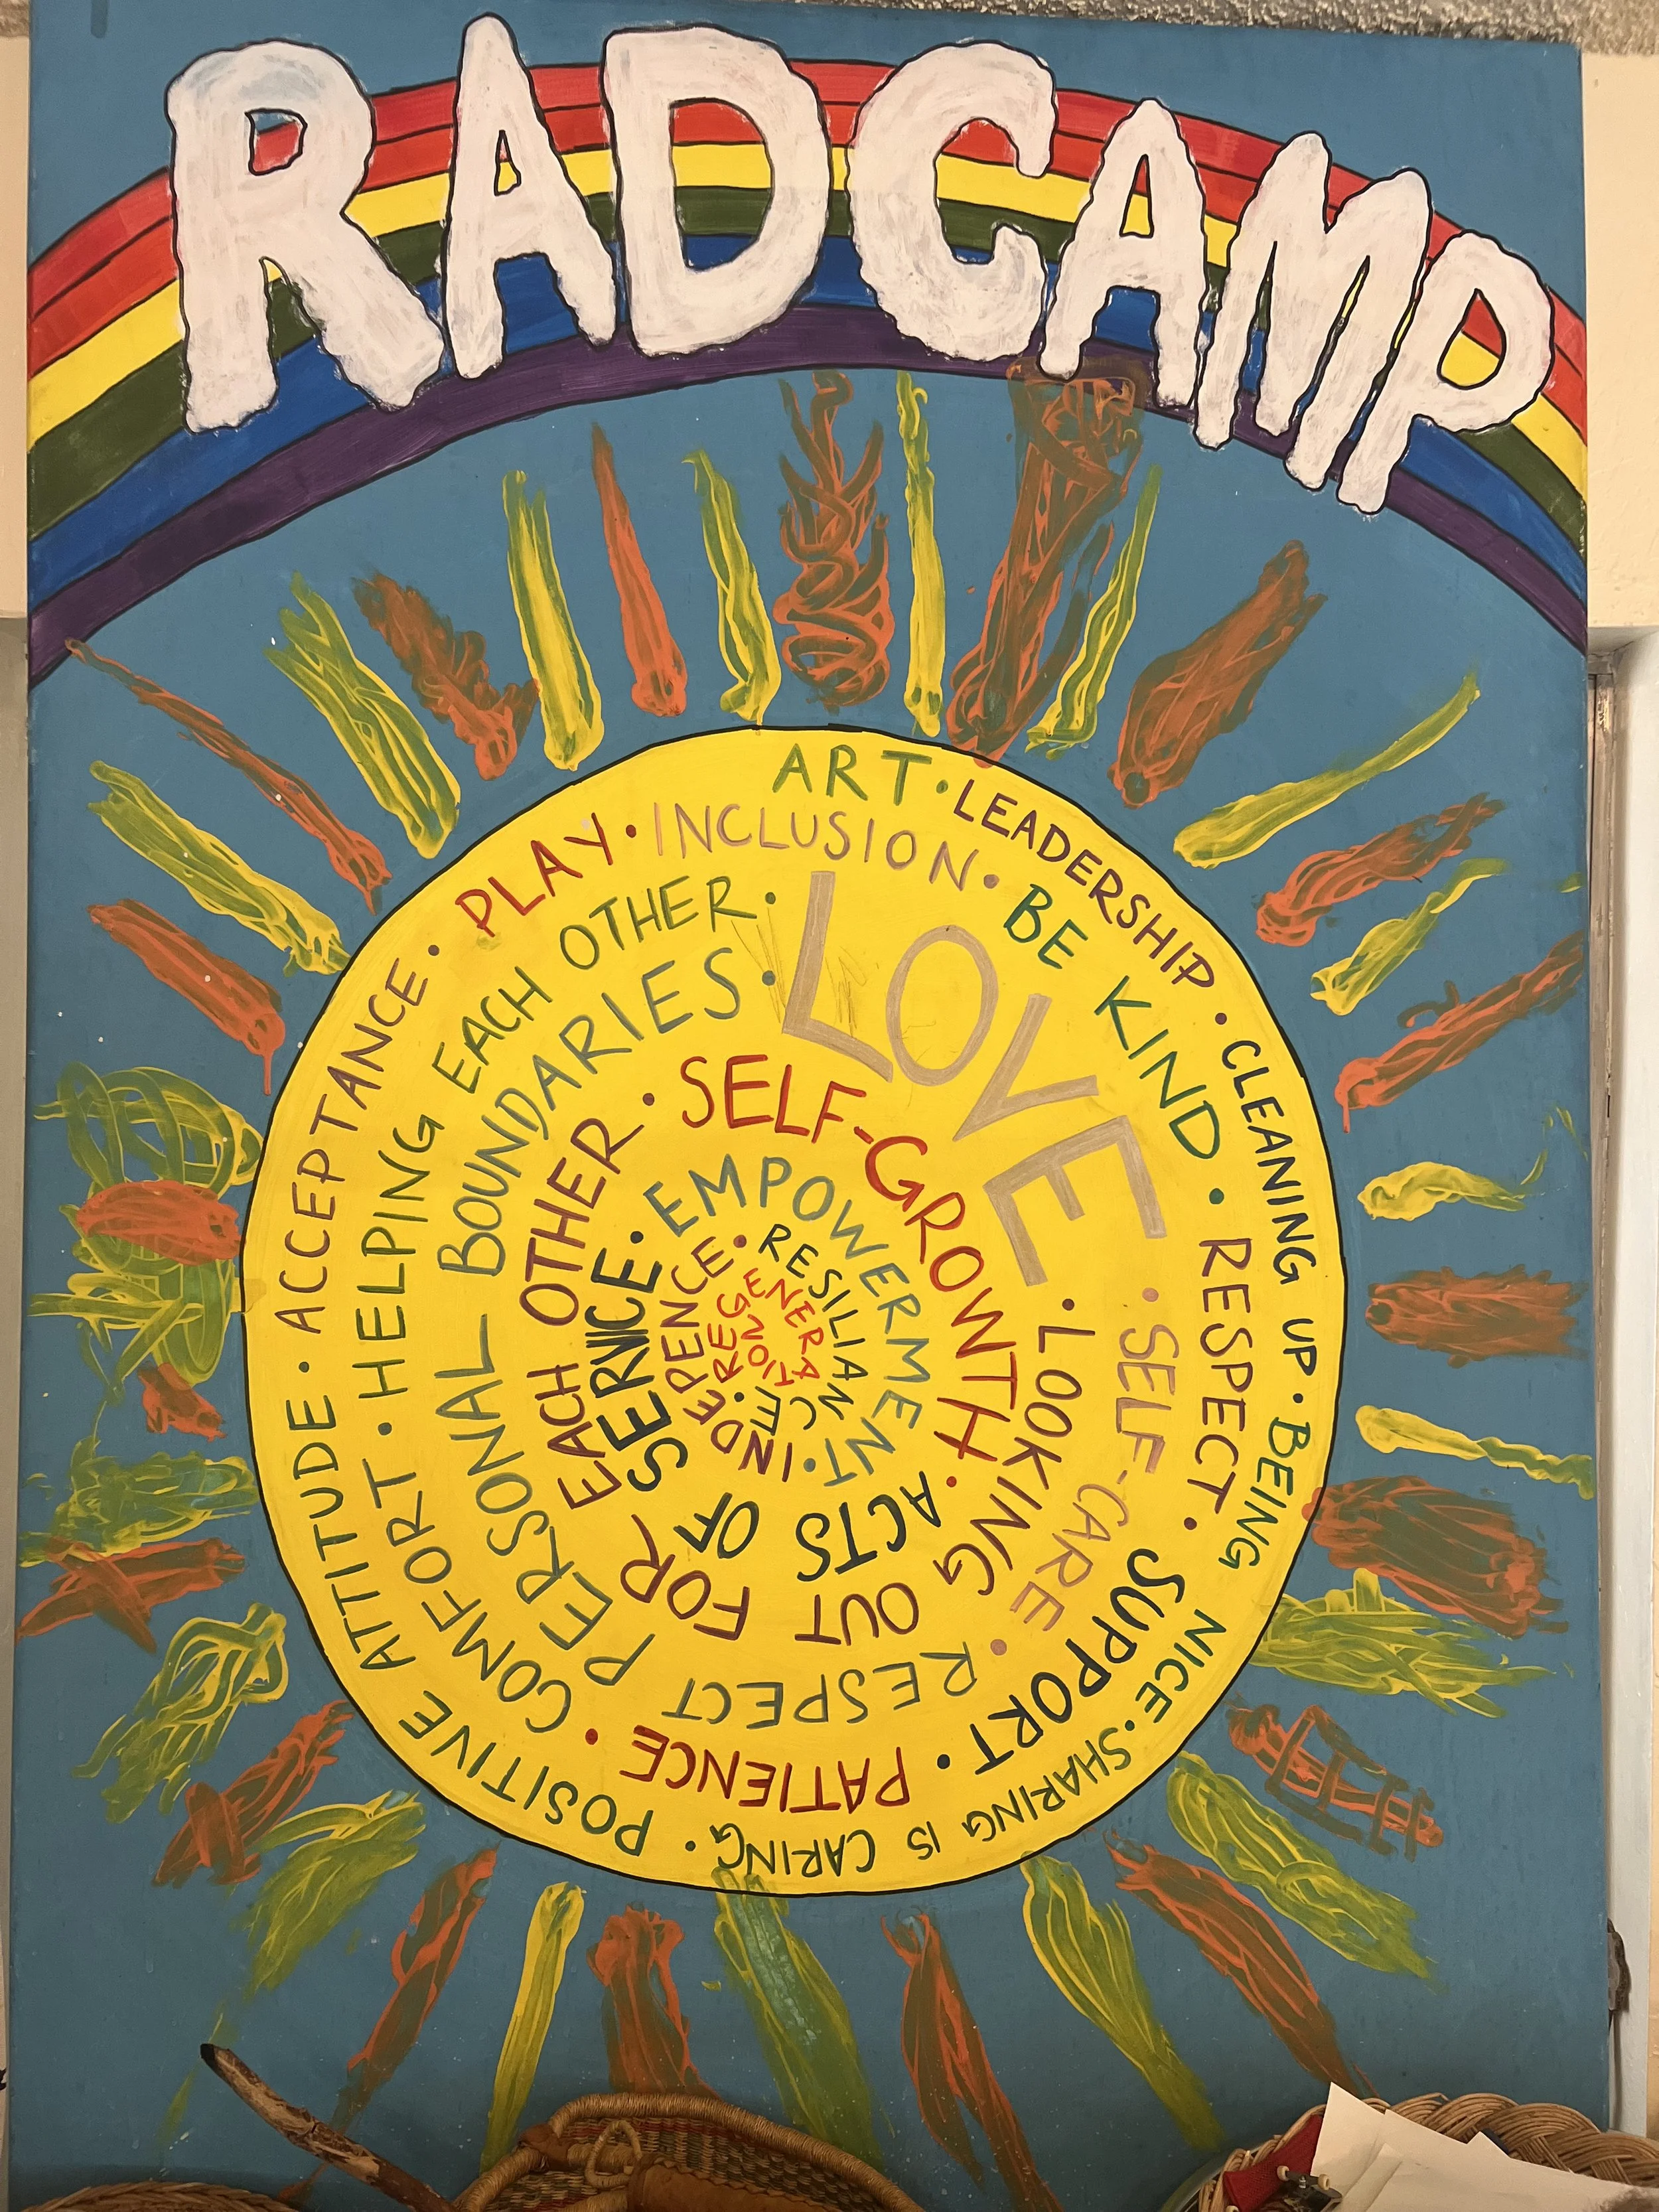 RAD CAMP
ART · LEADERSHIP · CLEANING UP · BEING NICE · SHARING IS CARING · POSITIVE ATTITUDE · ACCEPTANCE ·
PLAY · INCLUSION · BE KIND · RESPECT · SUPPORT · PATIENCE · COMFORT · HELPING EACH OTHER ·
LOVE · SELF-CARE · RESPECT PERSONAL BOUNDARIES ·
LOOKING OUT FOR EACH OTHER ·
SELF-GROWTH · ACTS OF SERVICE ·
EMPOWERMENT · INDEPENCE ·
RESILIANCE · REGENERATION